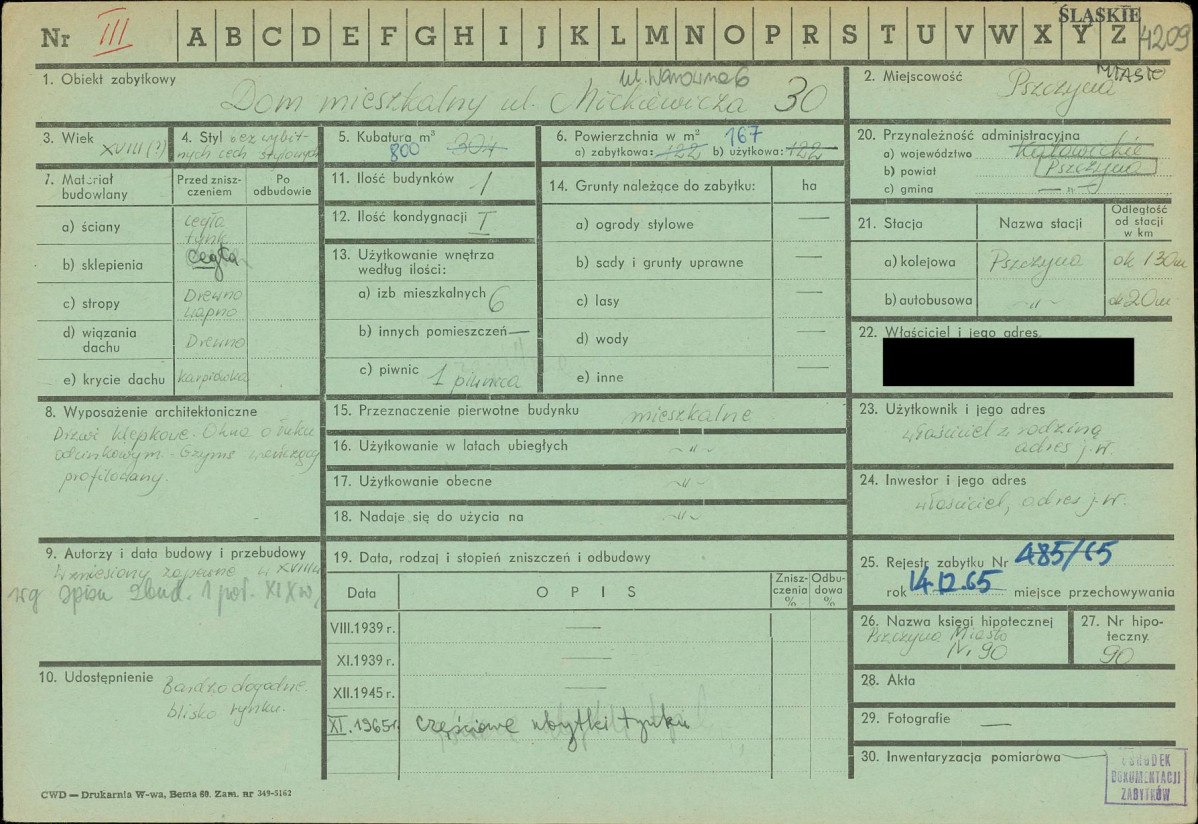 Nr III A B C D E F G H I J K L M N O P R S T U V W X Y Z
ŚLĄSKIE
4209
1. Obiekt zabytkowy
ul. Warowna 6
Dom mieszkalny ul. Mickiewicza 30
2. Miejscowość
Pszczyna MIASTO
3. Wiek
XVIII (?)
4. Styl bez wybit-
nych cech stylowych
5. Kubatura m³
800 304
6. Powierzchnia w m² 167
a) zabytkowa: 122 b) użytkowa: 122
20. Przynależność administracyjna
a) województwo Katowickie
b) powiat Pszczyna
c) gmina — " —
7. Materiał budowlany
Przed znisz-
czeniem
Po
odbudowie
a) ściany cegła
tynk
b) sklepienia cegła
c) stropy Drewno
wapno
d) wiązania
dachu Drewno
e) krycie dachu karpiówka
11. Ilość budynków 1
12. Ilość kondygnacji I
13. Użytkowanie wnętrza
według ilości:
a) izb mieszkalnych 6
b) innych pomieszczeń —
c) piwnic 1 piwnica
14. Grunty należące do zabytku: ha
a) ogrody stylowe —
b) sady i grunty uprawne —
c) lasy —
d) wody —
e) inne —
21. Stacja Nazwa stacji
Odległość
od stacji
w km
a) kolejowa Pszczyna ok 130m
b) autobusowa — " — ok 20m
22. Właściciel i jego adres
8. Wyposażenie architektoniczne
Drzwi klepkowe. Okna o łuku
odcinkowym. Gzyms wieńczący
profilowany.
15. Przeznaczenie pierwotne budynku mieszkalne
16. Użytkowanie w latach ubiegłych — " —
17. Użytkowanie obecne — " —
18. Nadaje się do użycia na — " —
23. Użytkownik i jego adres
właściciel z rodziną
adres j.w.
24. Inwestor i jego adres
właściciel, adres j.w.
9. Autorzy i data budowy i przebudowy
Wzniesiony zapewne w XVIII w
wg spisu zbud. 1 poł. XIX w,
19. Data, rodzaj i stopień zniszczeń i odbudowy
Data OPIS
Znisz-
czenia
%
Odbu-
dowa
%
VIII.1939 r. —
XI.1939 r. —
XII.1945 r. —
XI.1965r. częściowe ubytki tynku
25. Rejestr zabytku Nr 485/65
rok 14.12.65 miejsce przechowywania
26. Nazwa księgi hipotecznej
Pszczyna Miasto
Nr 90
27. Nr hipo-
teczny.
90
10. Udostępnienie Bardzo dogodne.
blisko rynku.
28. Akta
29. Fotografie —
30. Inwentaryzacja pomiarowa —
OŚRODEK
DOKUMENTACJI
ZABYTKÓW
CWD — Drukarnia W-wa, Bema 60. Zam. nr 349-5162